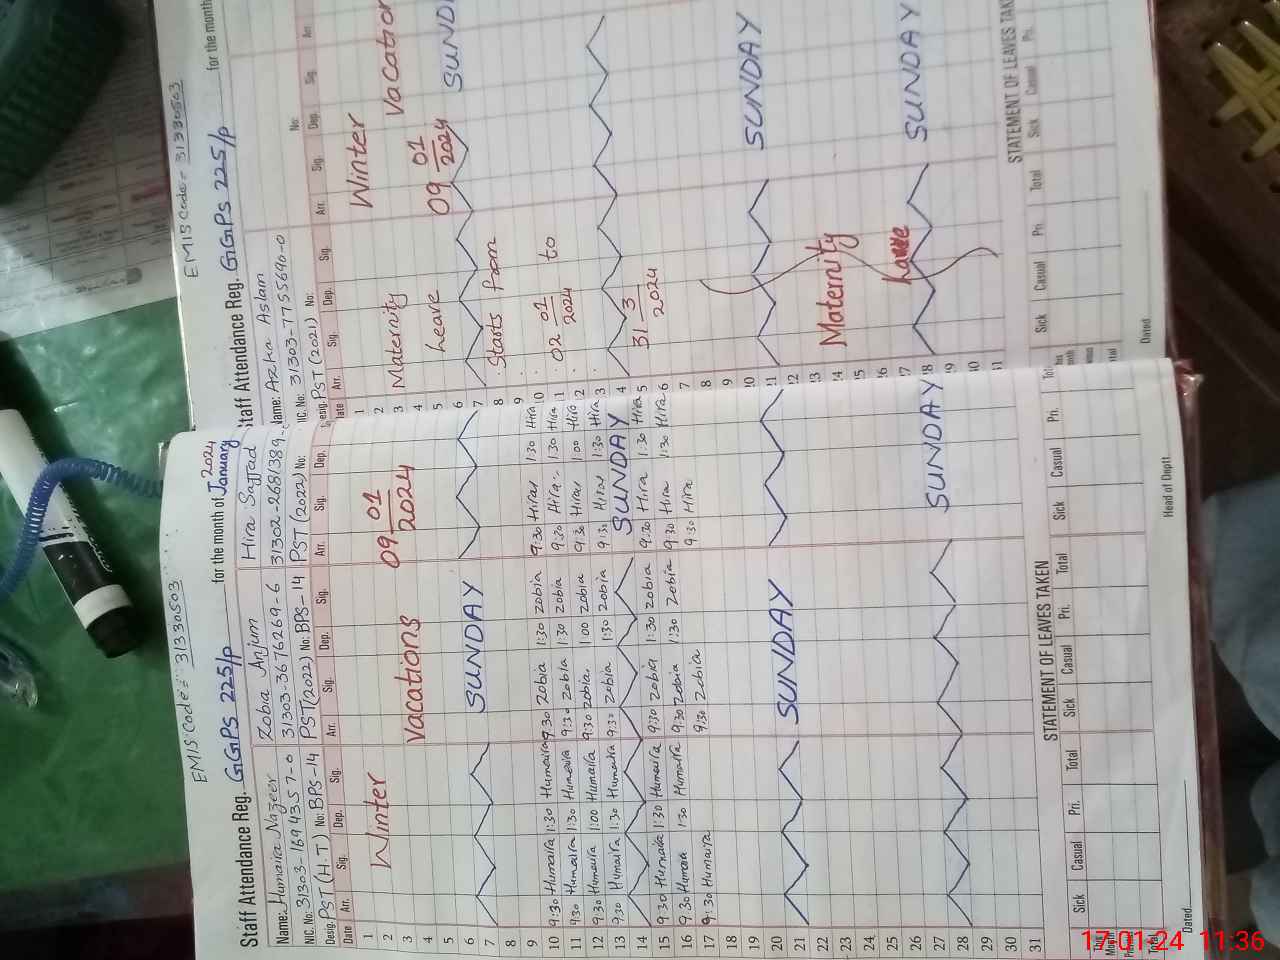 EMIS Code = 31330503
Staff Attendance Reg. GGPS 225/P for the month of January 2024
Name: Humaira Nazeer Zobia Anjum Hira Sajjad
NIC. No: 31303-1694357-0 31303-3676269-6 31302-2681389-
Desig. PST (H.T) No: BPS-14 PST (2022) No: BPS-14 PST (2022) No:
Date Arr. Sig. Dep. Sig. Arr. Sig. Dep. Sig. Arr. Sig. Dep.
1
2 Winter Vacations 09 01/2024
3
4
5
6
7 SUNDAY
8
9
10 9:30 Humaira 1:30 Humaira 9:30 Zobia 1:30 Zobia 9:30 Hira 1:30 Hira
11 9:30 Humaira 1:30 Humaira 9:30 Zobia 1:30 Zobia 9:30 Hira 1:30 Hira
12 9:30 Humaira 1:00 Humaira 9:30 Zobia 1:00 Zobia 9:30 Hira 1:00 Hira
13 9:30 Humaira 1:30 Humaira 9:30 Zobia 1:30 Zobia 9:30 Hira 1:30 Hira
14 SUNDAY
15 9:30 Humaira 1:30 Humaira 9:30 Zobia 1:30 Zobia 9:30 Hira 1:30 Hira
16 9:30 Humaira 1:30 Humaira 9:30 Zobia 1:30 Zobia 9:30 Hira 1:30 Hira
17 9:30 Humaira 9:30 Zobia 9:30 Hira
18
19
20
21 SUNDAY
22
23
24
25
26
27
28 SUNDAY
29
30
31
STATEMENT OF LEAVES TAKEN
Sick Casual Pri. Total Sick Casual Pri. Total Sick Casual Pri.
This Month
Total
Dated Head of Deptt
EMIS Code = 31330503
Staff Attendance Reg. GGPS 225/P for the month
Name: Azka Aslam
NIC. No: 31303-7755690-0 No:
Desig. PST (2021) No:
Date Arr. Sig. Dep. Sig. Arr. Sig. Dep. Sig. Arr.
1 Winter Vacation
2
3 Maternity
4
5 Leave 09 01/2024
6
7 SUND
8 Starts from
9
10
11 02 01/2024 to
12
13
14
15 31 3/2024
16
17
18
19
20
21 SUNDAY
22
23
24 Maternity
25
26
27 Leave
28 SUNDAY
29
30
31
STATEMENT OF LEAVES TAKEN
Sick Casual Pri. Total Sick Casual Pri.
Dated
17-01-24 11:36